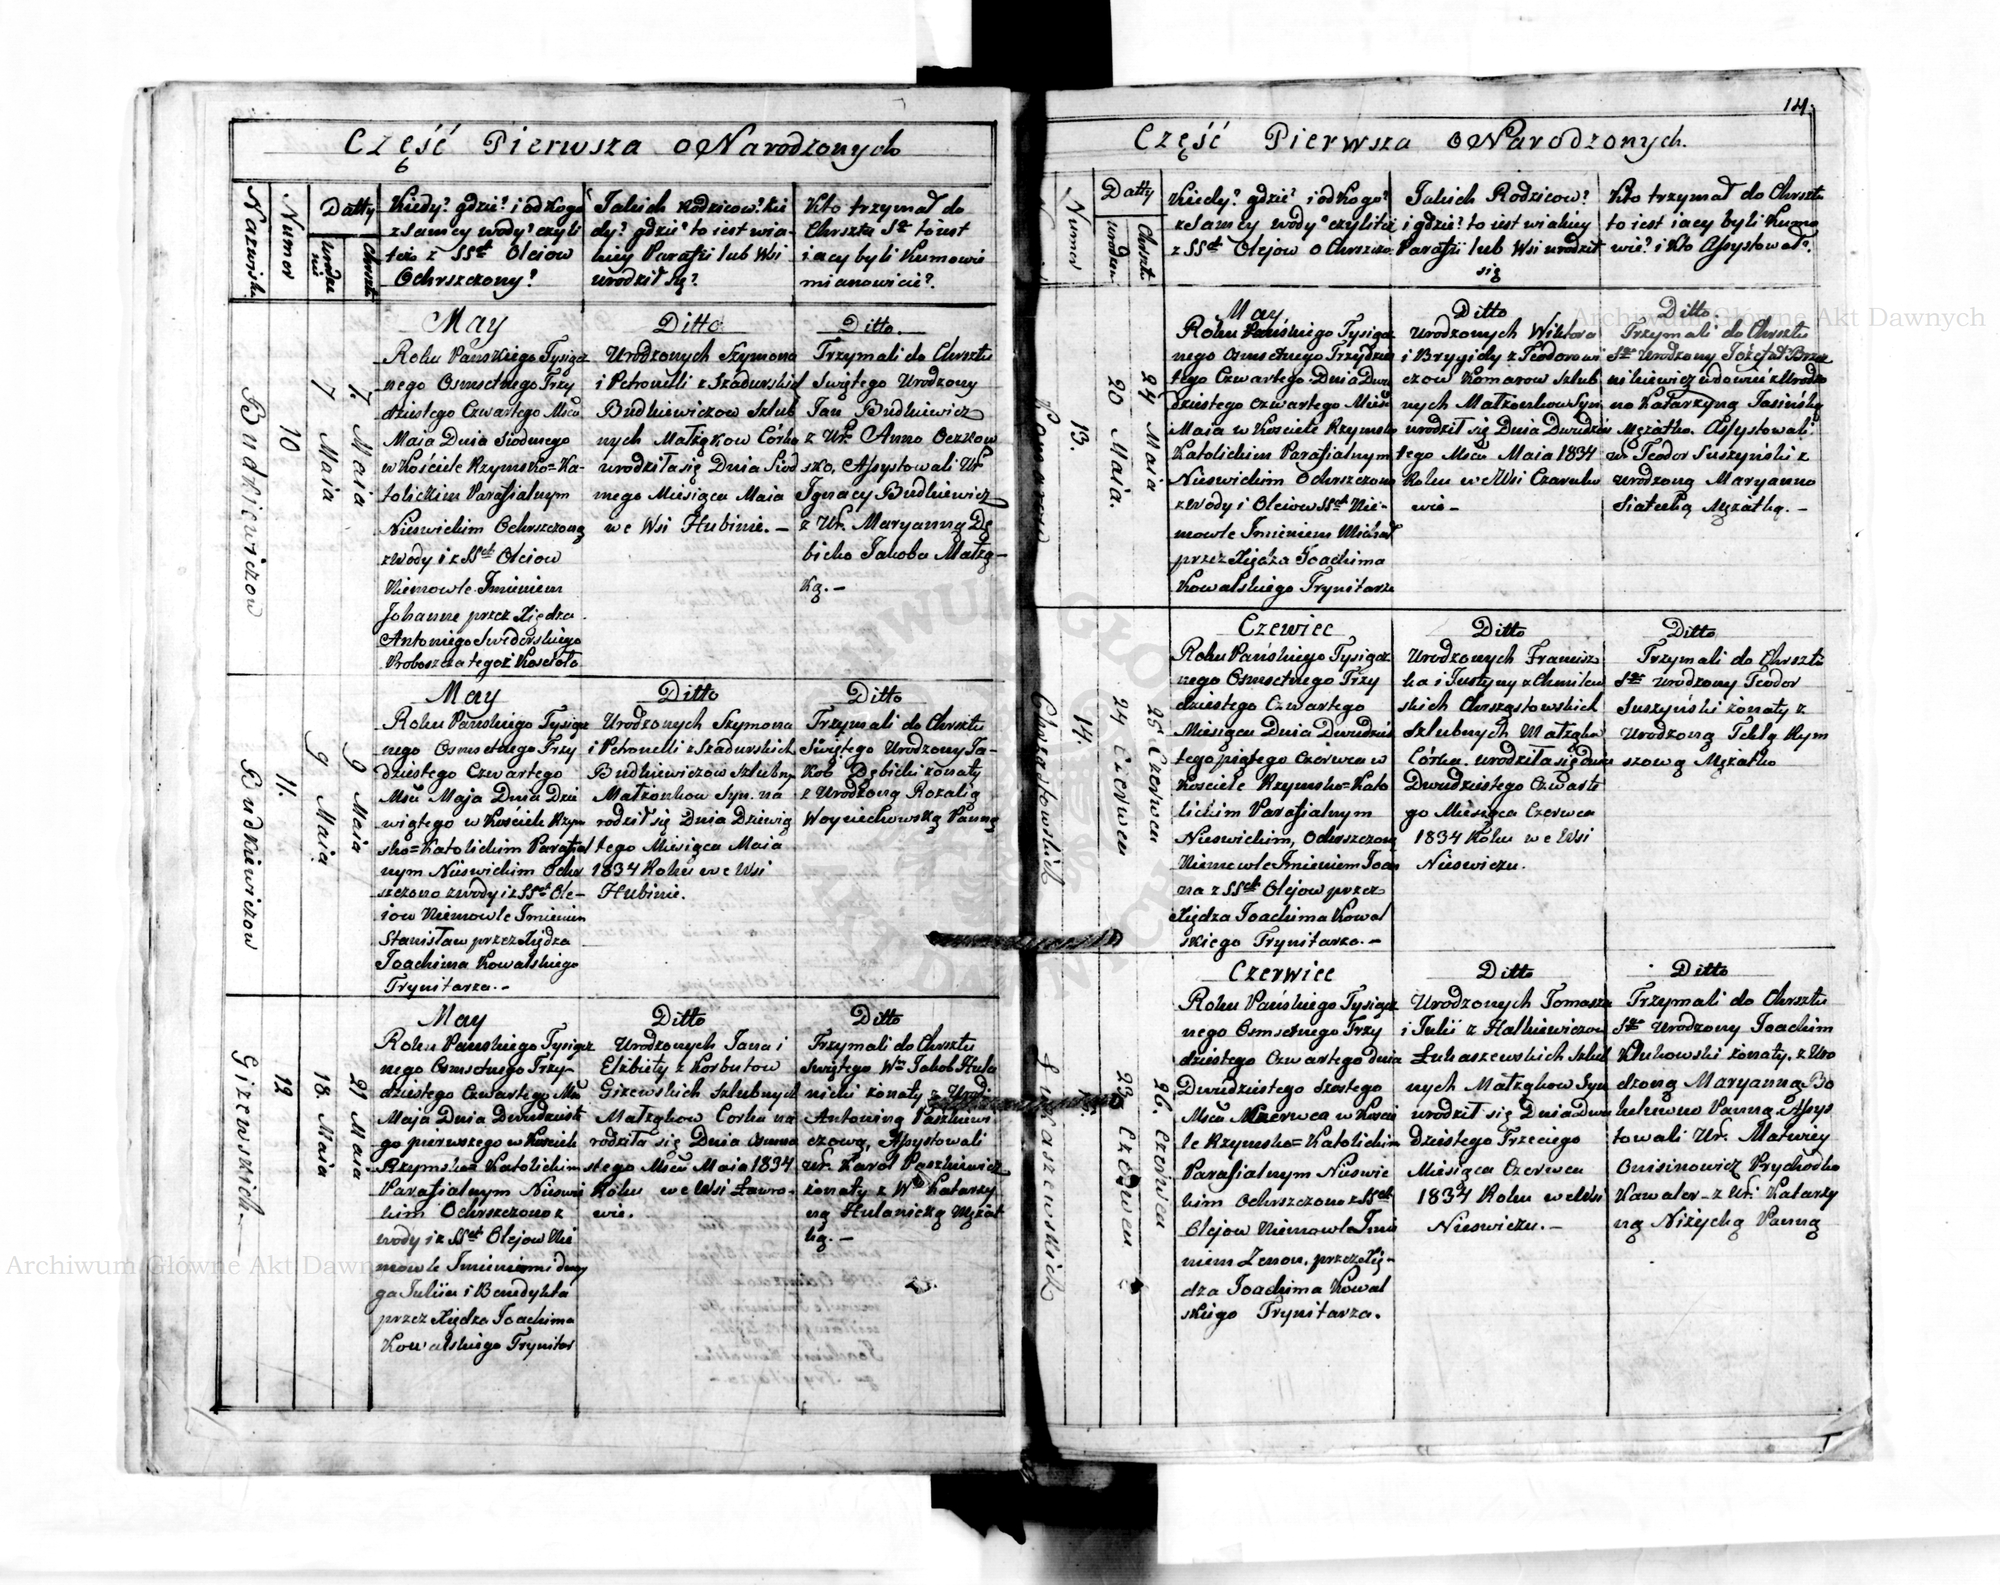 Część Pierwsza o Narodzonych
Nazwisko
Numer
Datty
urodze
nia
Chrztu
Kiedy? gdzie? i od kogo
z samey wody? czyli
też z SSch Oleiow
Ochrszczony?
Jakich Rodzicow? kie
dy? gdzie? to iest w ia-
kiey Parafii lub Wsi
urodził się?
Kto trzymał do
Chrszta Sgo to iest
iacy byli Kumowie
mianowicie?
Budkiewiczow
10
7 Maia
7. Maia
May
Roku Pańskiego Tysiącz
nego Osmsetnego Trzy
dziestego Czwartego Mścu
Maia Dnia Siodmego
w Kościele Rzymsko=Ka-
tolickim Parafialnym
Nieswickim Ochrszczoną
z wody i z SSch Oleiow
Niemowle Imieniem
Johanne przez Xiędza
Antoniego Swiderskiego
Proboszcza tegoż Kościoła
Ditto
Urodzonych Szymona
i Petronelli z Szadurskich
Budkiewiczow Szlub
nych Małżąkow Córka
urodziła się Dnia Siod
mego Miesiąca Maia
we Wsi Hubinie. -
Ditto.
Trzymali do Chrsztu
Swiętego Urodzony
Jan Budkiewicz
z Ur. Anno Oczkow
sko, Assystowali Ur
Ignacy Budkiewicz
z Ur. Maryanną Dę
bicko Jakoba Małżą-
ką. -
Budkiewiczow
11.
9 Maia
9 Maia
May
Roku Pańskiego Tysiącz
nego Osmsetnego Trzy
dziestego Czwartego
Mścu Maja Dnia Dzie
wiątego w Kościele Rzym
sko=Katolickim Parafial
nym Nieswickim Ochr
szczono z wody i z SSch Ole-
iow Niemowle Imieniem
Stanisław przez Xiędza
Joachima Kowalskiego
Trynitarza. -
Ditto
Urodzonych Szymona
i Petronelli z Szadurskich
Budkiewiczow Szlubny
Małżonkow Syn. na
rodził się Dnia Dziewią
tego Miesiąca Maia
1834 Roku we Wsi
Hubinie.
Ditto
Trzymali do Chrsztu
Swiętego Urodzony Ja-
kob Dębicki żonaty
z Urodzoną Rozalią
Woyciechowską Panną
Giżewskich.
12
18. Maia
21 Maia
May
Roku Pańskiego Tysiącz
nego Osmsetnego Trzy-
dziestego Czwartego Mśca
Maja Dnia Dwudziest
go pierwszego w Kościele
Rzymsko= Katolickim
Parafialnym Nieswi
kim Ochrszczono z
wody i z SSch Olejow Nie
mowle Imieniomi dwoy
ga Juliin i Benedykta
przez Xiędza Joachima
Kowalskiego Trynitar
Ditto
Urodzonych Jana i
Elżbiety z Korbutow
Giżewskich Szlubnych
Małżąkow Corka na
rodziła się Dnia Osmna
stego Mścu Maia 1834
Roku we Wsi Ławro-
wie.
Ditto
Trzymali do Chrsztu
Swiętego Wny Jakob Hula
nicki żonaty z Urodz
Antoniną Paszkiewi
czową, Assystowali
Ur. Károl Paszkiewicz
żonaty z Wną Katarzy
ną Hulanicką Mężat
ką. -
14.
Część Pierwsza o Narodzonych.
Numer
Datty
urodzenia
Chrztu
Kiedy? gdzie? i od Kogo?
z Samey wody? czyli też
z SSch Olejow Ochrszczo
Jakich Rodzicow?
i gdzie? to iest w iakiey
Parafii lub Wsi urodził
się
Kto trzymał do Chrsztu
to iest iacy byli Kumo
wie? i Kto Assystował?
Komarow
13.
20 Maia.
24 Maia
May
Roku Pańskiego Tysiącz
nego Osmsetnego Trzydzies
tego Czwartego Dnia Dwu
dziestego Czwartego Mieś
Maia w Kościele Rzymsko
Katolickim Parafialnym
Nieswickim Ochrszczono
z Wody i Oleiow SSch Nie-
mowle Imieniem Michał
przez Xiędza Joachima
Kowalskiego Trynitarza
Ditto
Urodzonych Wiktora
i Brygidy z Teodorowi
czow Komarow Szlub
nych Małżonkow Syn
urodził się Dnia Dwudzies
tego Mścu Maia 1834
Roku we Wsi Czaruko
wie -
Ditto
Trzymali do Chrsztu
Sgo Urodzony Józefat Brze
nikiewicz wdowiec z Urodzo
no Katarzyną Jasińską
Mężatko. Assystowali
Ur Teodor Suszyński z
urodzoną Maryanno
Siatecką Mężatką. -
Chrząstowskich
14.
24 Czerwca
25 Czerwca
Czewiec
Roku Pańskiego Tysiącz
nego Osmsetnego Trzy
dziestego Czwartego
Miesiąca Dnia Dwudzies
tego piątego Czerwca w
Kościele Rzymsko=Kato
lickim Parafialnym
Nieswickim, Ochrszczoną
Niemowle Imieniem Joan
na z SSch Olejow przez
Xiędza Joachima Kowal
skiego Trynitarza. -
Ditto
Urodzonych Francisz
ka i Justyny z Chmielew
skich Chrząstowskich
Szlubnych Małżąkow
Córka urodziła się Dnia
Dwudziestego Czwarte
go Miesiąca Czerwca
1834 Roku we Wsi
Nieswiczu.
Ditto
Trzymali do Chrsztu
Sgo urodzony Teodor
Suszyński żonaty z
Urodzoną Teklą Rym
szową Mężatko
Łukaszewskich
15.
23. Czerwca
26. Czerwca
Czerwiec
Roku Pańskiego Tysiącz
nego Osmsetnego Trzy
dziestego Czwartego Dnia
Dwudziestego szostego
Mścu Czerwca w Koście
le Rzymsko=Katolickim
Parafialnym Nieswic
kim Ochrszczono z SSch
Olejow Niemowle Imie
niem Zenon, przez Xię-
dza Joachima Kowal
skiego Trynitarza.
Ditto
Urodzonych Tomasza
i Julii z Halkiewiczow
Łukaszewskich Szlub
nych Małżąkow Syn
urodził się Dnia Dwu
dziestego Trzeciego
Miesiąca Czerwca
1834 Roku we Wsi
Nieswiczu. -
Ditto
Trzymali do Chrsztu
Sgo Urodzony Joachim
Klukowski żonaty, z Uro
dzoną Maryanną Bo
Panną Assys
towali Ur. Matwiey
Onisimowicz Prychodko
Kawaler z Ur. Katarzy
ną Niżycką Panną
Archiwum Główne Akt Dawnych
Archiwum Główne Akt Dawnych